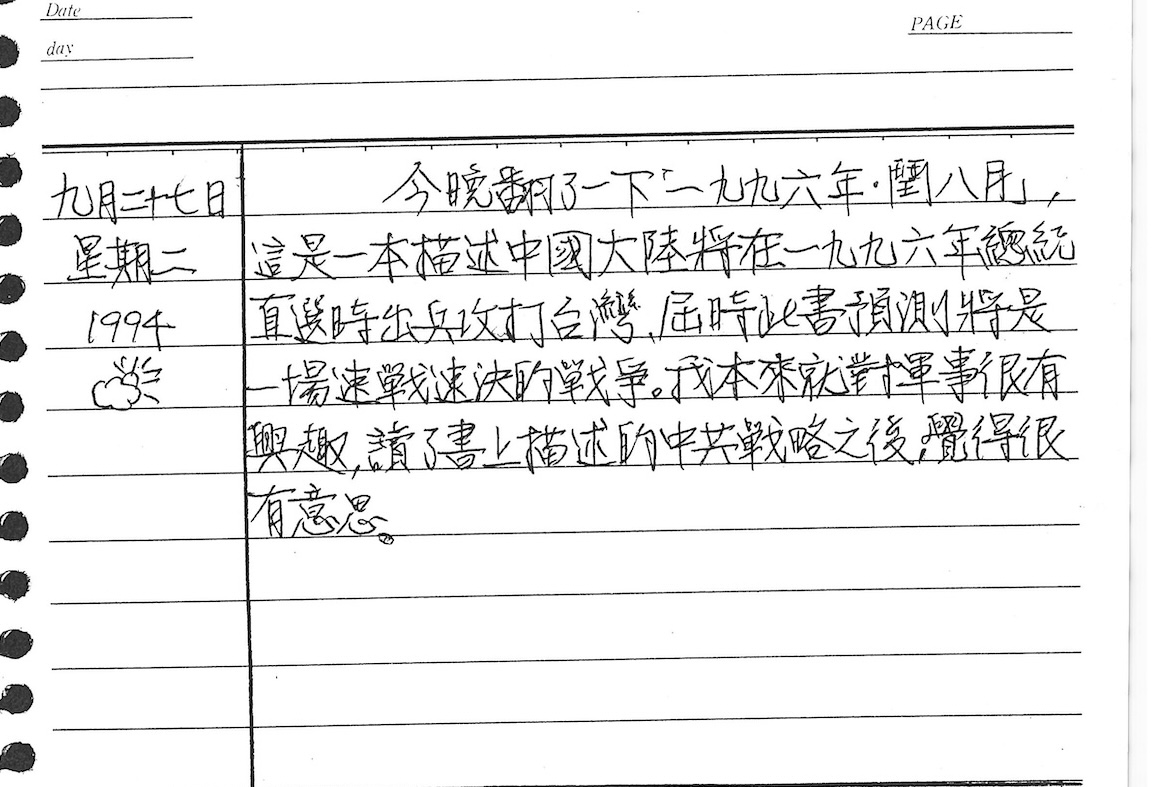 Date
day
PAGE
九月二十七日
星期二
1994
今晚翻了一下「一九九六年·閏八月」,
這是一本描述中國大陸將在一九九六年總統
直選時出兵攻打台灣,屆時此書預測將是
一場速戰速決的戰爭。我本來就對軍事很有
興趣,讀了書上描述的中共戰略之後,覺得很
有意思。